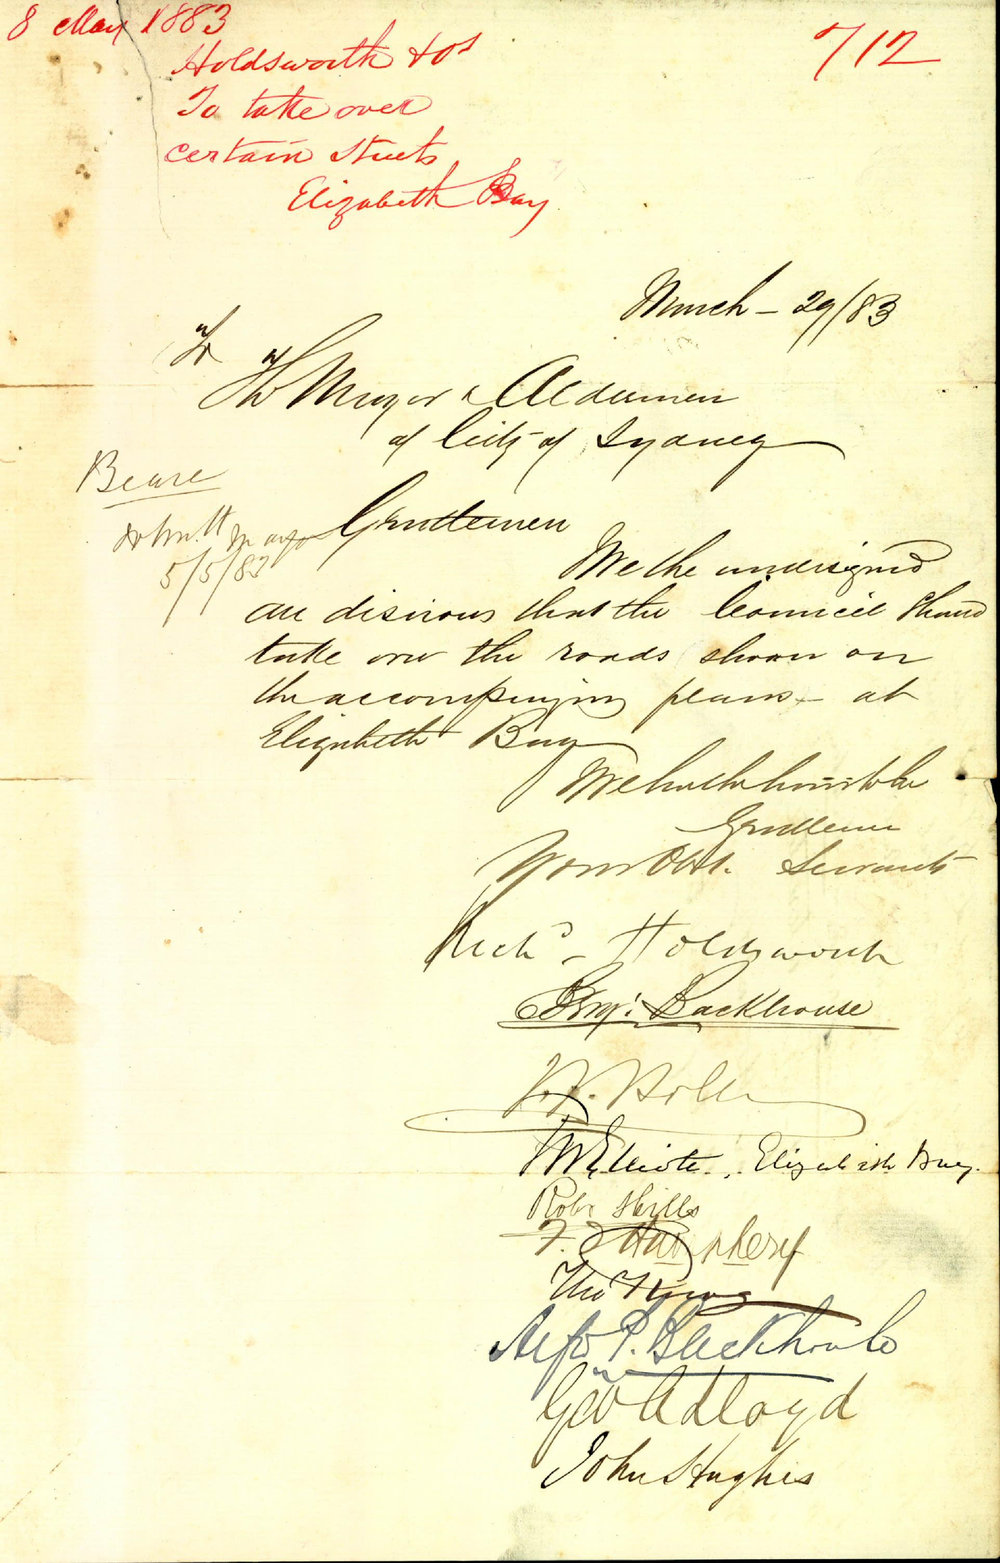 8 May 1883
712
Holdsworth & Ors
To take over
certain streets
Elizabeth Bay
March - 29/83
To
The Mayor & Aldermen
of City of Sydney
Gentlemen
5/5/83
We the undersigned
are desirous that the Council should
take over the roads shown on
the accompanying plans - at
Elizabeth Bay
We have the honor to be
Gentlemen
Your Obt. Servants
Richd - Holdsworth
Benj: Backhouse
Elizabeth Bay.
Robt Hills
Thos King
Alfd P. Backhouse
Geo A Lloyd
John Hughes